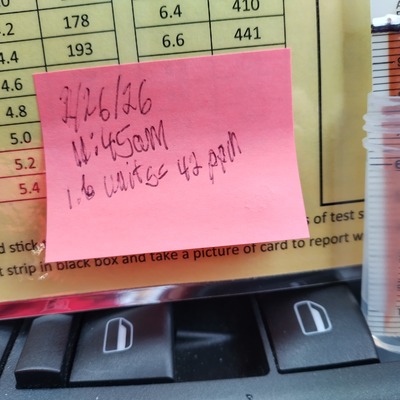 178
6.4 410
4.2
193
6.6 441
4.4
4.6
4.8
5.0
5.2
5.4
2/26/26
11:45am
1.6 units = 42 ppm
s of test s
d stick
t strip in black box and take a picture of card to report w